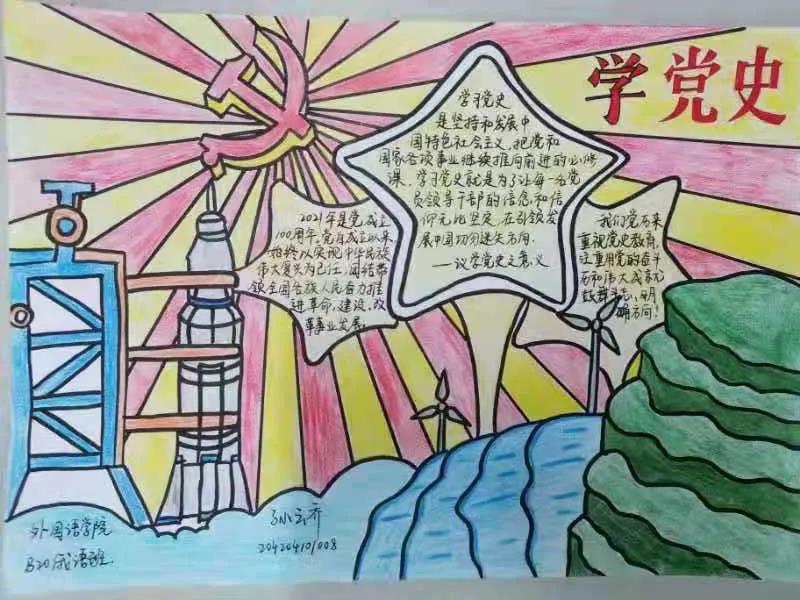 学党史
学习党史
是坚持和发展中
国特色社会主义、把党和
国家各项事业继续推向前进的必修
课。学习党史就是为了让每一名党
员领导干部的信念和信
仰无比坚定,在引领发
展中国切勿迷失方向.
——议学党史之意义
2021年是党成立
100周年。党自成立以来,
始终以实现中华民族
伟大复兴为己任,团结带
领全国各族人民奋力推
进革命、建设、改
革事业发展.
我们党历来
重视党史教育,
注重用党的奋斗
历和伟大成享元
鼓舞斗志、明
确方向!
外国语学院
B20成语班
孙云乔
20420410/008